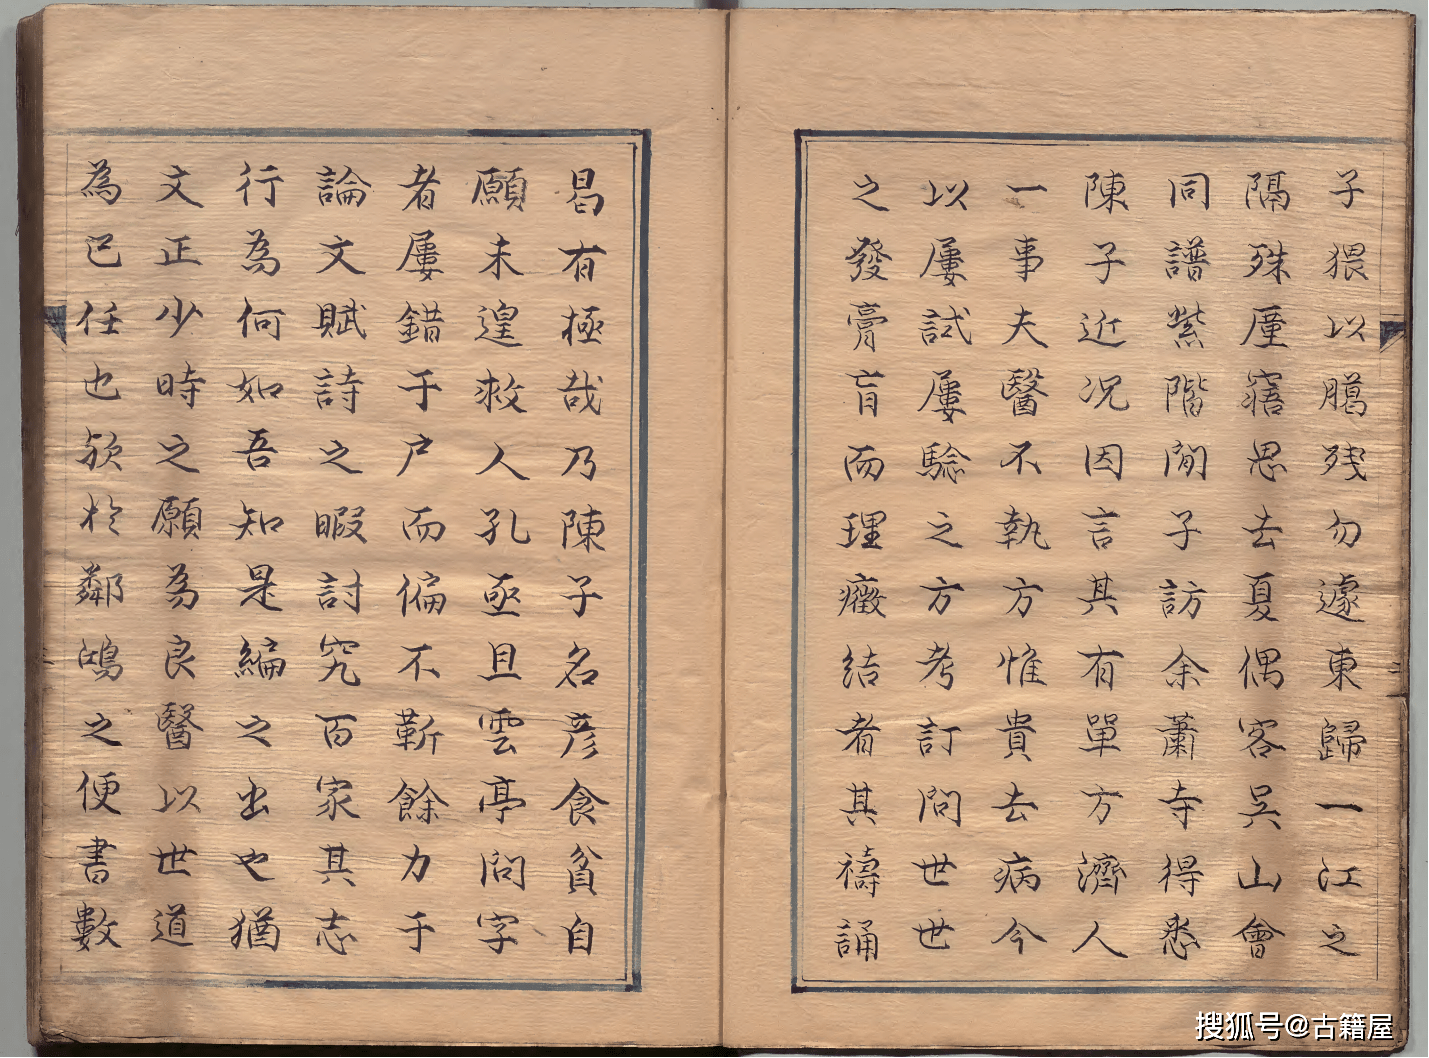 子猥以臈残勿遽東歸一江之
隔殊厪寤思去夏偶客吳山會
同譜紫階閒子訪余蕭寺得悉
陳子近況因言其有單方濟人
一事夫醫不執方惟貴去病今
以屢試屢騐之方考訂問世世
之發膏肓而理癥結者其禱誦
曷有極哉乃陳子名彦食貧自
願未遑救人孔亟且雲亭問字
者屢錯于户而偏不靳餘力于
論文賦詩之暇討究百家其志
行為何如吾知是編之出也猶
文正少時之願為良醫以世道
為已任也欤於鄰鴻之便書數
搜狐号@古籍屋